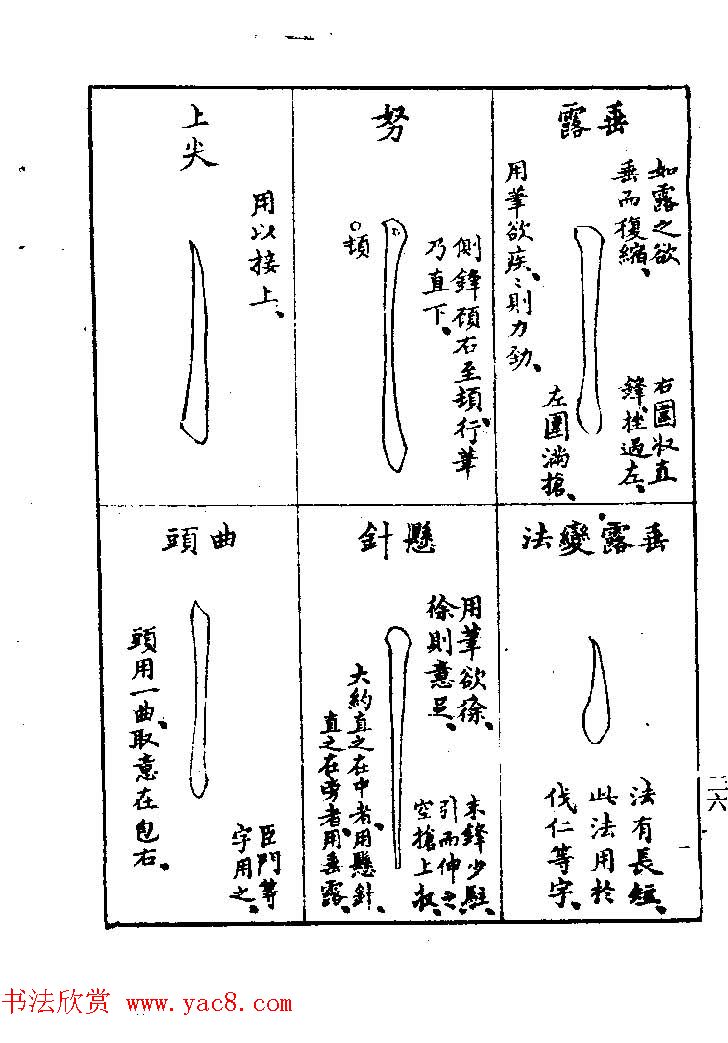 垂露
如露之欲
垂而復縮、
右圓收直
鋒、挫過左、
左圍滿搶、
用筆欲疾、疾則力勁、
努
側鋒頓右至頓、行筆
乃直下、
頓
上尖
用以接上、
垂露變法
法有長短、
此法用於
伐仁等字、
懸針
用筆欲徐、
徐則意足、
末鋒少駐、
引而伸之、
空搶上收、
大約直之在中者、用懸針、
直之在旁者、用垂露、
曲頭
頭用一曲、取意在包右、
臣門等
字用之、
二六
书法欣赏 www.yac8.com